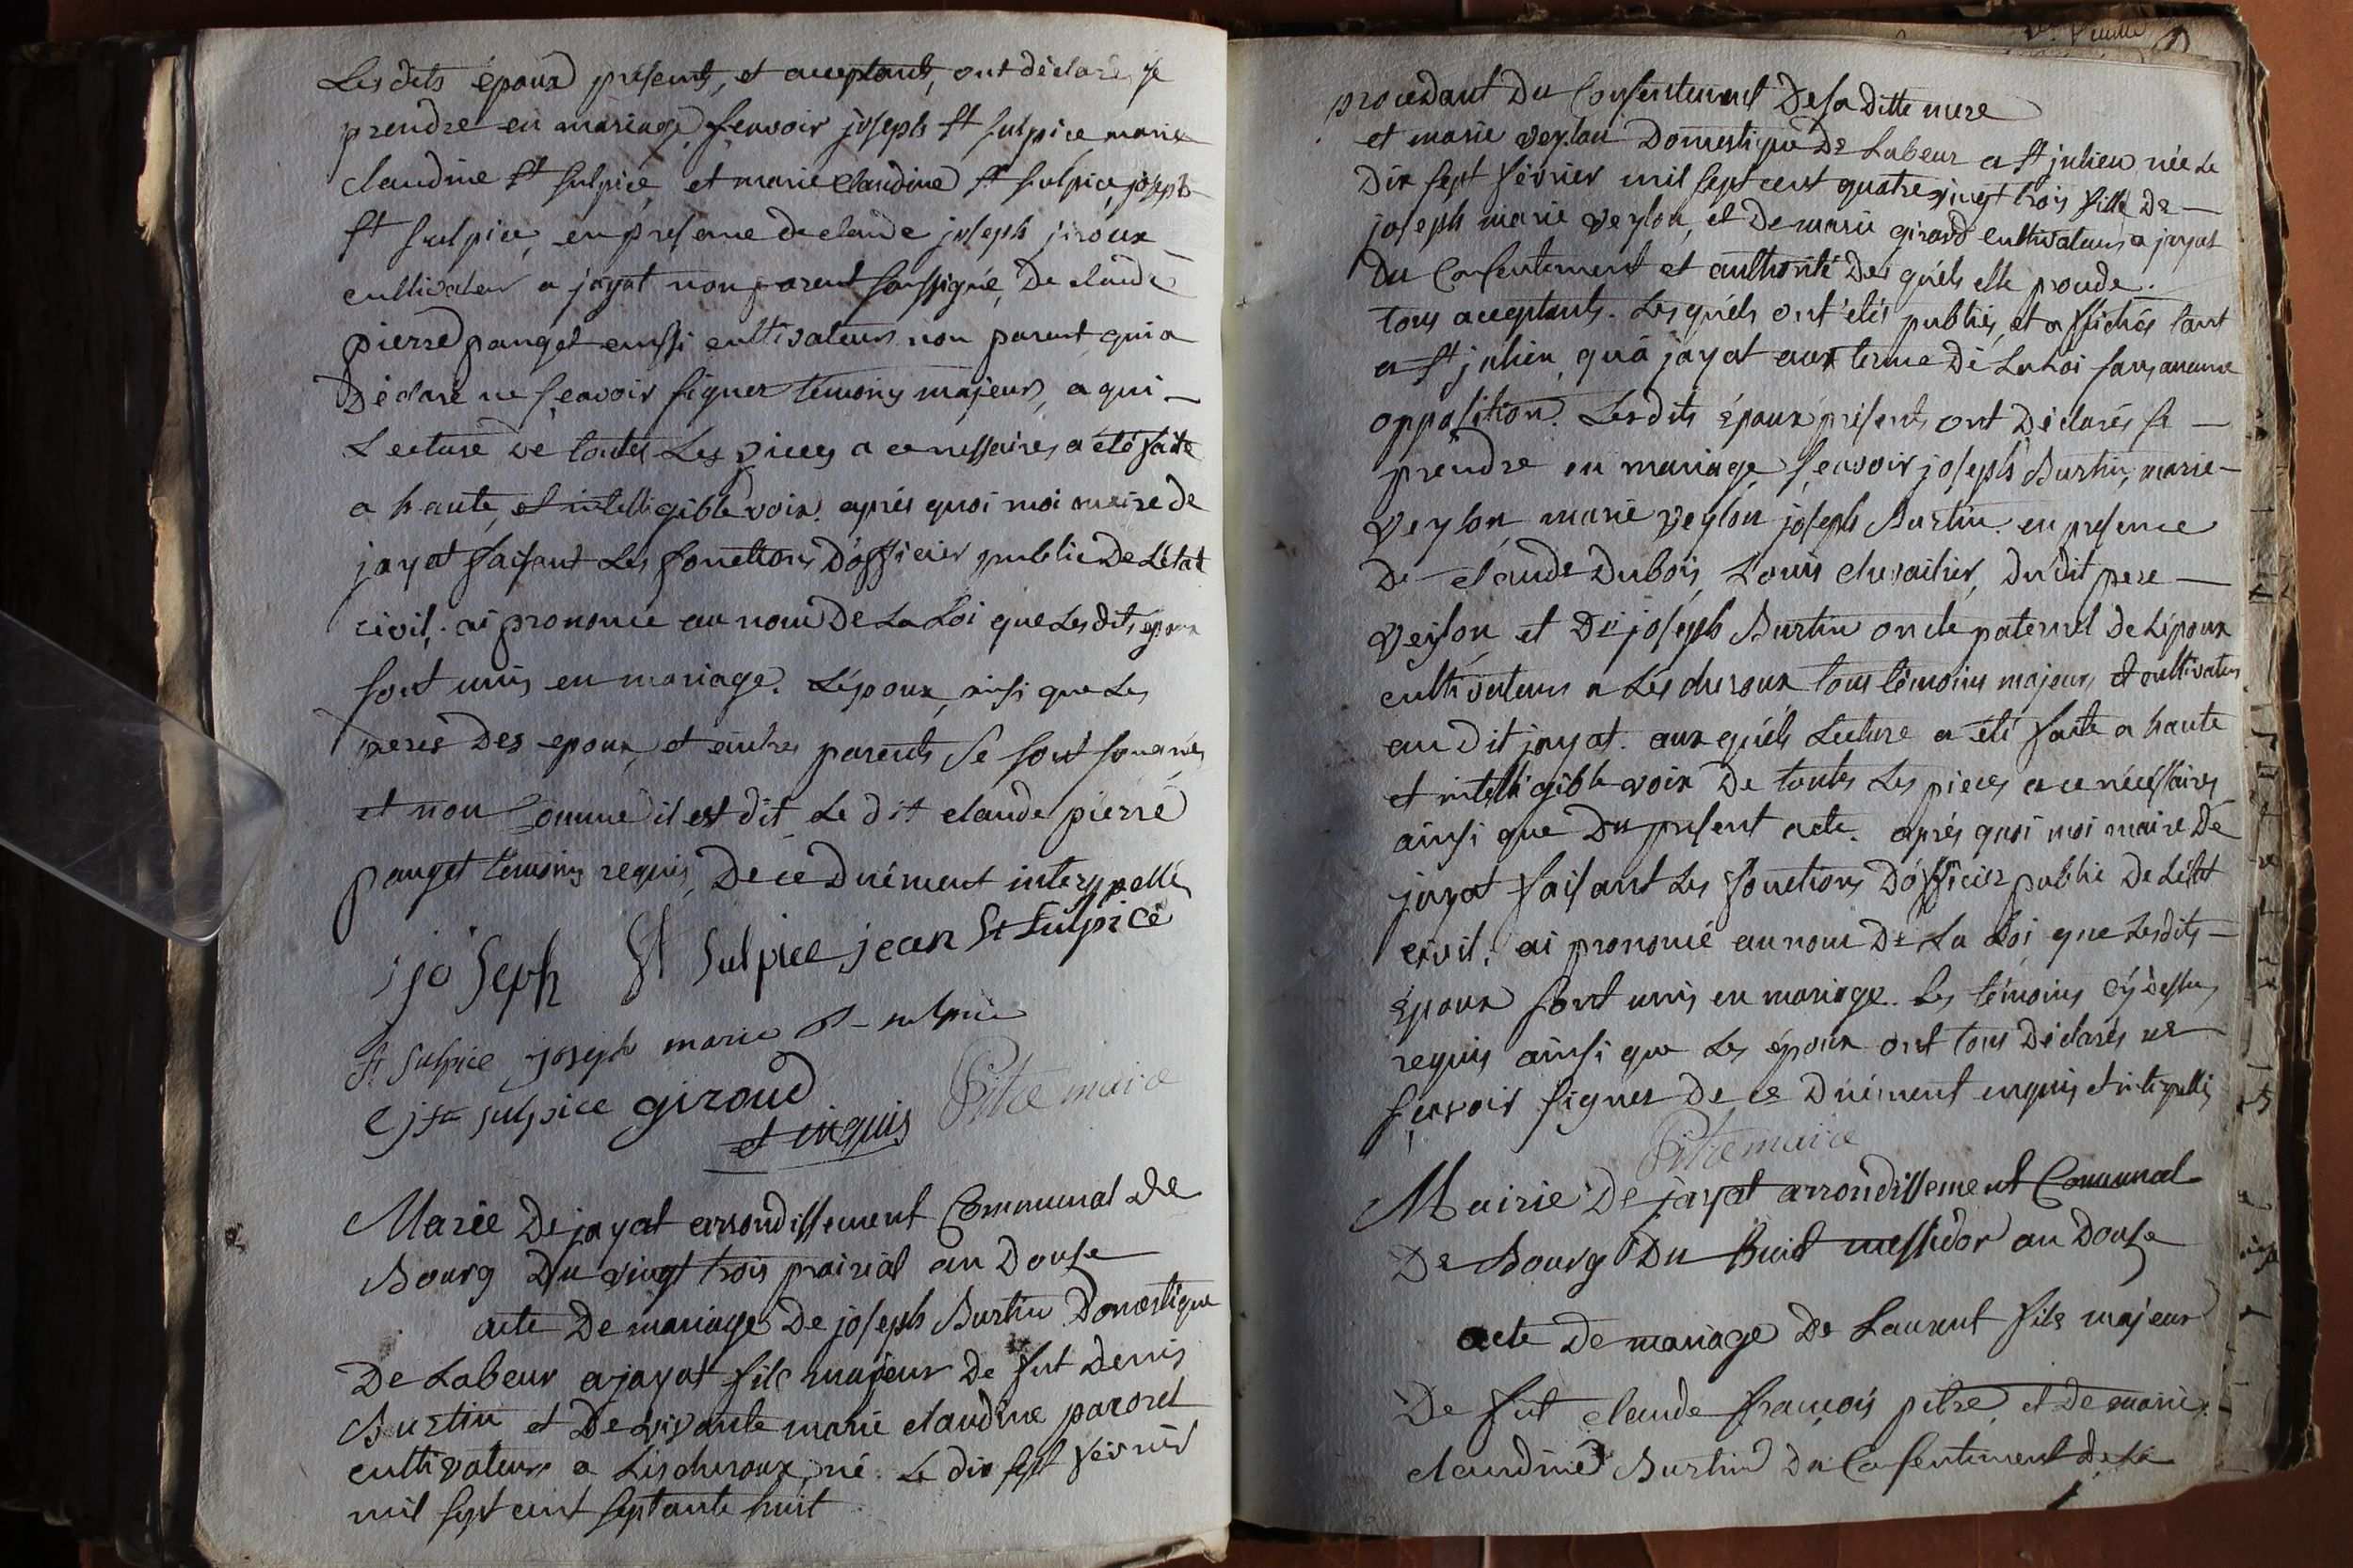 Les dits époux présents, et acceptants, ont déclarés se
prendre en mariage, sçavoir joseph st sulpice marie
claudine st sulpice, et marie claudine st sulpice, joseph
st sulpice, en presence de claude joseph jiroux
cultivateur a jayat non parent soussigné, De claude
pierre panget aussi cultivateur non parent qui a
Déclaré ne sçavoir signer temoins majeurs, a qui —
Lecture de toutes Les pieces a ce nessaires a été faite
a haute, et intelligible voix. aprés quoi moi maire de
jayat faisant Les fonctions D'officier public De L'état
civil. ai prononcé au nom De La Loi que Les dits epoux
sont unis en mariage. L'époux, ainsi que Les
peres Des epoux, et autres parents se sont
et non comme il est dit Le dit claude pierre
panget temoins requis, De ce Duément interppellés
joseph St Sulpice jean St Sulpice
St Sulpice joseph marie St sulpice
C j st sulpice giroud
et enquis Pitre maire
Marie De jayat arrondissement Communal De
Bourg Du vingt trois prairial an Douse
acte De mariage De joseph Burtin Domestique
De Labeur a jayat fils majeur De fut Denis
Burtin et De vivante marie claudine
cultivateurs a Lescheroux, né. Le dix sept février
mil sept cent septante huit
procedant Du Consentement De sa Ditte mere
et marie veylon Domestique De Labeur a st julien née Le
Dix sept février mil sept cent quatre vingt trois fille De —
joseph marie veylon, et De marie girard cultivateurs a jayat
Du Consentement et authorité Des quéls elle procede.
tous acceptants. Les quéls ont étés publiés, et affichés tant
a st julien, qu'a jayat aux terme De La Loi sans aucune
opposition. Les dits Epoux présents ont Déclarés se —
prendre en mariage, sçavoir joseph Burtin, marie —
veylon, marie veylon joseph Burtin. en presence
De claude Dubois, Louis chevailier, Du dit pere —
veylon, et De joseph Burtin oncle paternel De L'époux
cultivateurs a Léscheroux tous témoins majeurs, et cultivateurs
au Dit jayat. aux quéls Lecture a été faite a haute
et intelligible voix De toutes Les pieces a ce nécéssaires
ainsi que Du present acte. aprés quoi moi maire De
jayat faisant Les fonctions D'officier public De L'état
civil. ai prononcé au nom De La Loi que Les dits —
époux sont unis en mariage. Les témoins cÿ dessus
requis ainsi que Les époux ont tous Déclarés ne
sçavoir signer De ce Duément enquis et interpellés
Pitre maire
Mairie De jayat arrondissement Communal
De Bourg Du huit messidor an Douse
acte De mariage De Laurent fils majeur
De fut claude françois pitre, et De marie
claudine Burtin Du Consentement De La